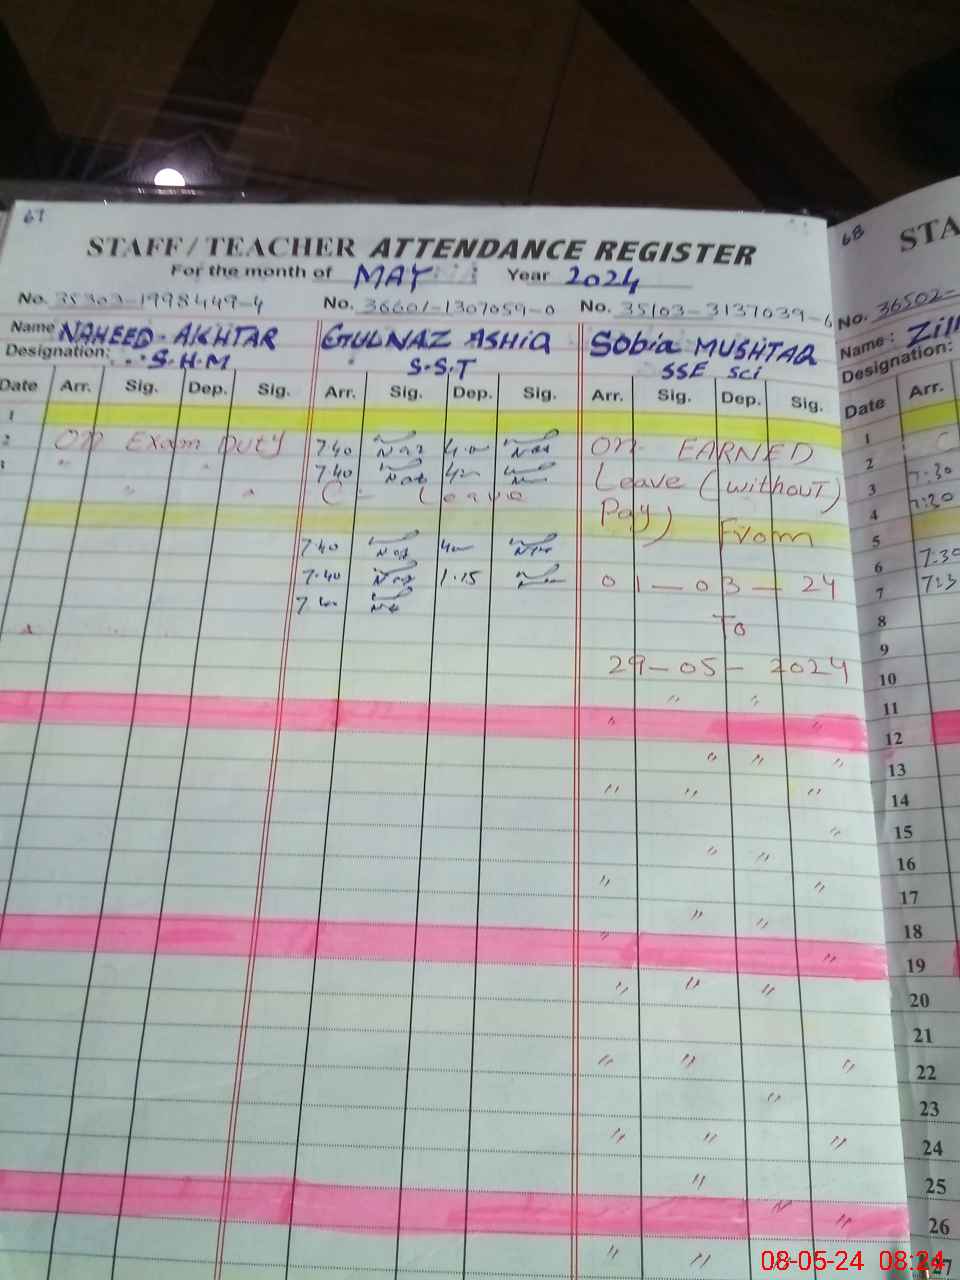 67
STAFF / TEACHER ATTENDANCE REGISTER
For the month of MAY Year 2024
No. 35303-1998449-4 No. 36601-1307059-0 No. 35103-3137039-6
Name NAHEED-AKHTAR GULNAZ ASHIQ Sobia MUSHTAQ
Designation: S.H.M S.S.T SSE Sci
Date Arr. Sig. Dep. Sig. Arr. Sig. Dep. Sig. Arr. Sig. Dep. Sig.
1
2 On Exam Duty 7.40 On EARNED
7.40 Leave (without
C. Leave Pay) From
7.40
7.40 1.15 01-03-24
7.40 To
29-05-2024
68
STA
No. 36502-
Name : Zill
Designation:
Date Arr.
1
2 7:30
3 7:30
4
5
6 7:30
7 7:3
8
9
10
11
12
13
14
15
16
17
18
19
20
21
22
23
24
25
26
27
08-05-24 08:24